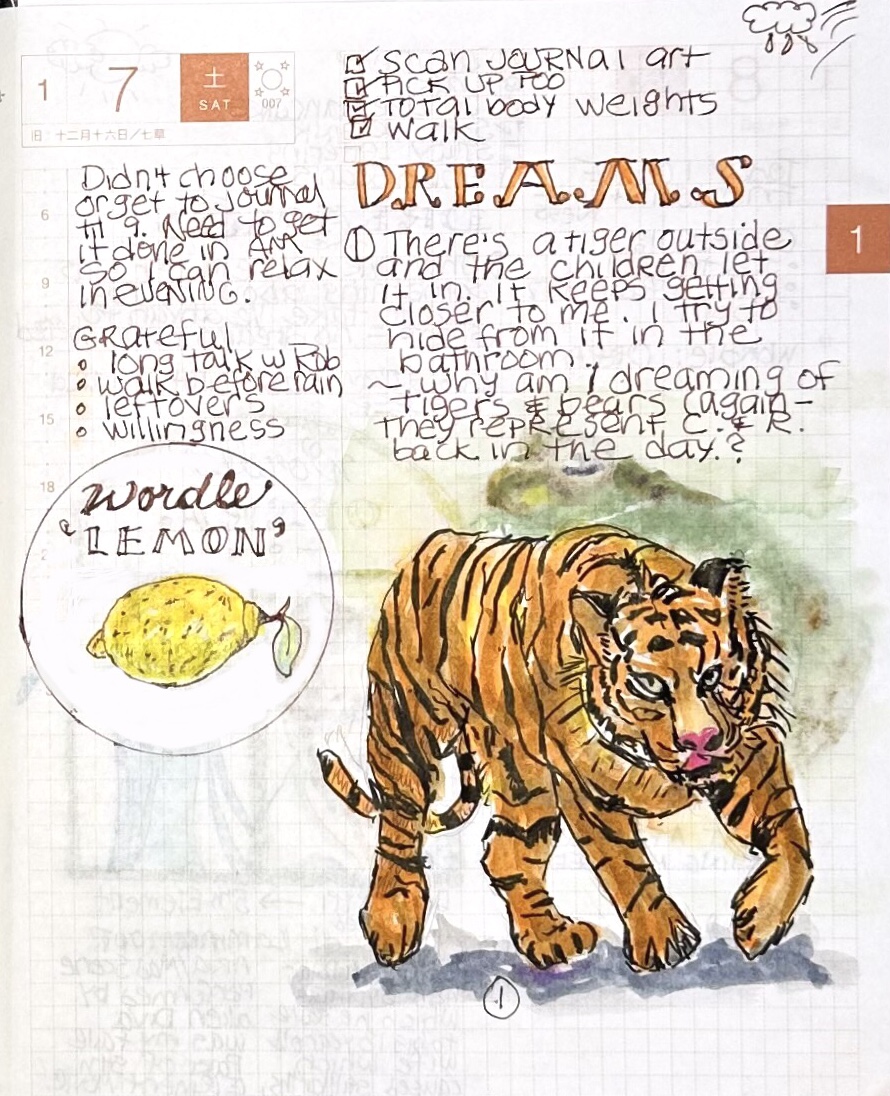 1 7 土 SAT 007
旧: 十二月十六日/七草
Scan JOURNAL art
PICK UP TOO
TOTAL body weights
Walk
Didn't choose
or get to journal
til 9. Need to get
it done in AM
so I can relax
in EVENING.
GRateful
long talk w Rob
walk before rain
leftovers
willingness
Wordle
"LEMON"
DREAMS
① There's a tiger outside
and the children let
it in. It keeps getting
closer to me. I try to
hide from it in the
bathroom.
~ Why am I dreaming of
tigers & bears (again-
they represent C. & R.
back in the day.?
1
6
9
12
15
18
2
1